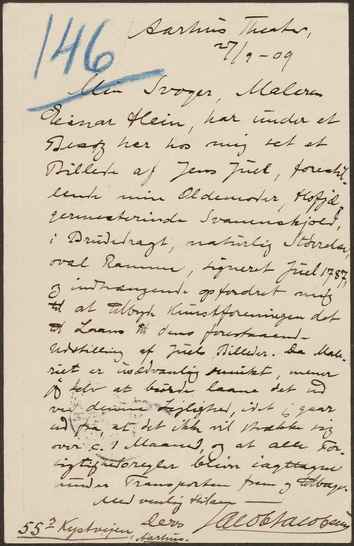 146
Aarhus Theater,
27/9-09
Min Svoger, Maleren
Einar Hein, har under et
Besøg her hos mig set et
Billede af Jens Juel, forestil-
lende min Oldemoder, Hofjæ-
germesterinde Svanenskjold,
i Brudedragt, naturlig Størrelse,
oval Ramme, signeret Juel 1787,
og indtrængende opfordret mig
til at tilbyde Kunstforeningen det
til Laans til dens forestaaende
Udstilling af Juels Billeder. Da Male-
riet er usædvanlig smukt, mener
jeg selv at burde laane det ud
ved denne Lejlighed, idet jeg gaar
ud fra, at det ikke vil strække sig
over c. 1 Maaned, og at alle For-
sigtighedsregler bliver iagttagne
under Transporten frem og tilbage.
Med venlig Hilsen
Deres Jacob Jacobsen
55² Kystvejen, Aarhus.